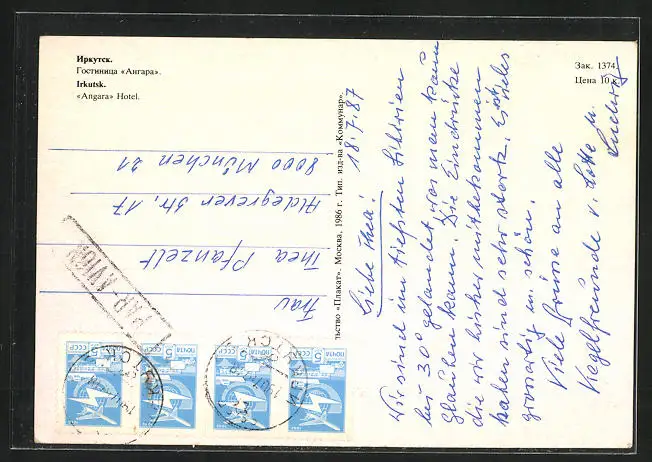 Иркутск.
Гостиница «Ангара».
Irkutsk.
«Angara» Hotel.
Зак. 1374.
Цена 10 к.
льство «Плакат». Москва, 1986 г. Тип. изд-ва «Коммунар».
18.7.87
Liebe Thea!
Wir sind im tiefsten Sibirien
bei 30° gelandet was man kaum
glauben kann. Die Eindrücke
die wir bisher mitbekommen
haben sind sehr stark. Es ist alles
grossartig u. schön.
Viele Grüsse an alle
Kegelfreunde v. Lotte u.
Ludwig
Frau
Thea Pfanzelt
Aldegrever Str. 17
8000 München 21
PAR AVION
ПОЧТА СССР 5
ПОЧТА СССР 5
ПОЧТА СССР 5
ПОЧТА СССР 5